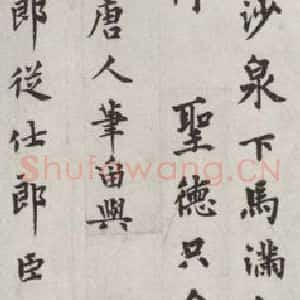 沙泉下馬滿
聖德只
唐人筆留與
郎從仕郎臣
Shufawang.CN